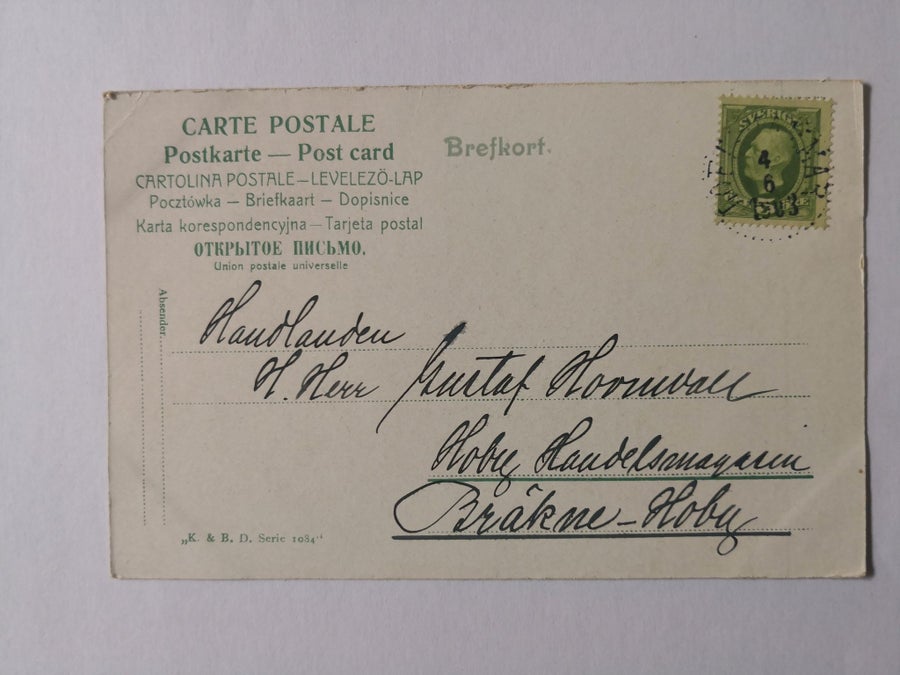 CARTE POSTALE
Postkarte — Post card
CARTOLINA POSTALE — LEVELEZÖ-LAP
Pocztówka — Briefkaart — Dopisnice
Karta korespondencyjna — Tarjeta postal
ОТКРЫТОЕ ПИСЬМО.
Union postale universelle
Brefkort.
SVERIGE
4
6
1903
Absender
Handlanden
H. Herr Gustaf
Hoby Handelsmagasin
Bräkne-Hoby
„K. & B. D. Serie 1084"